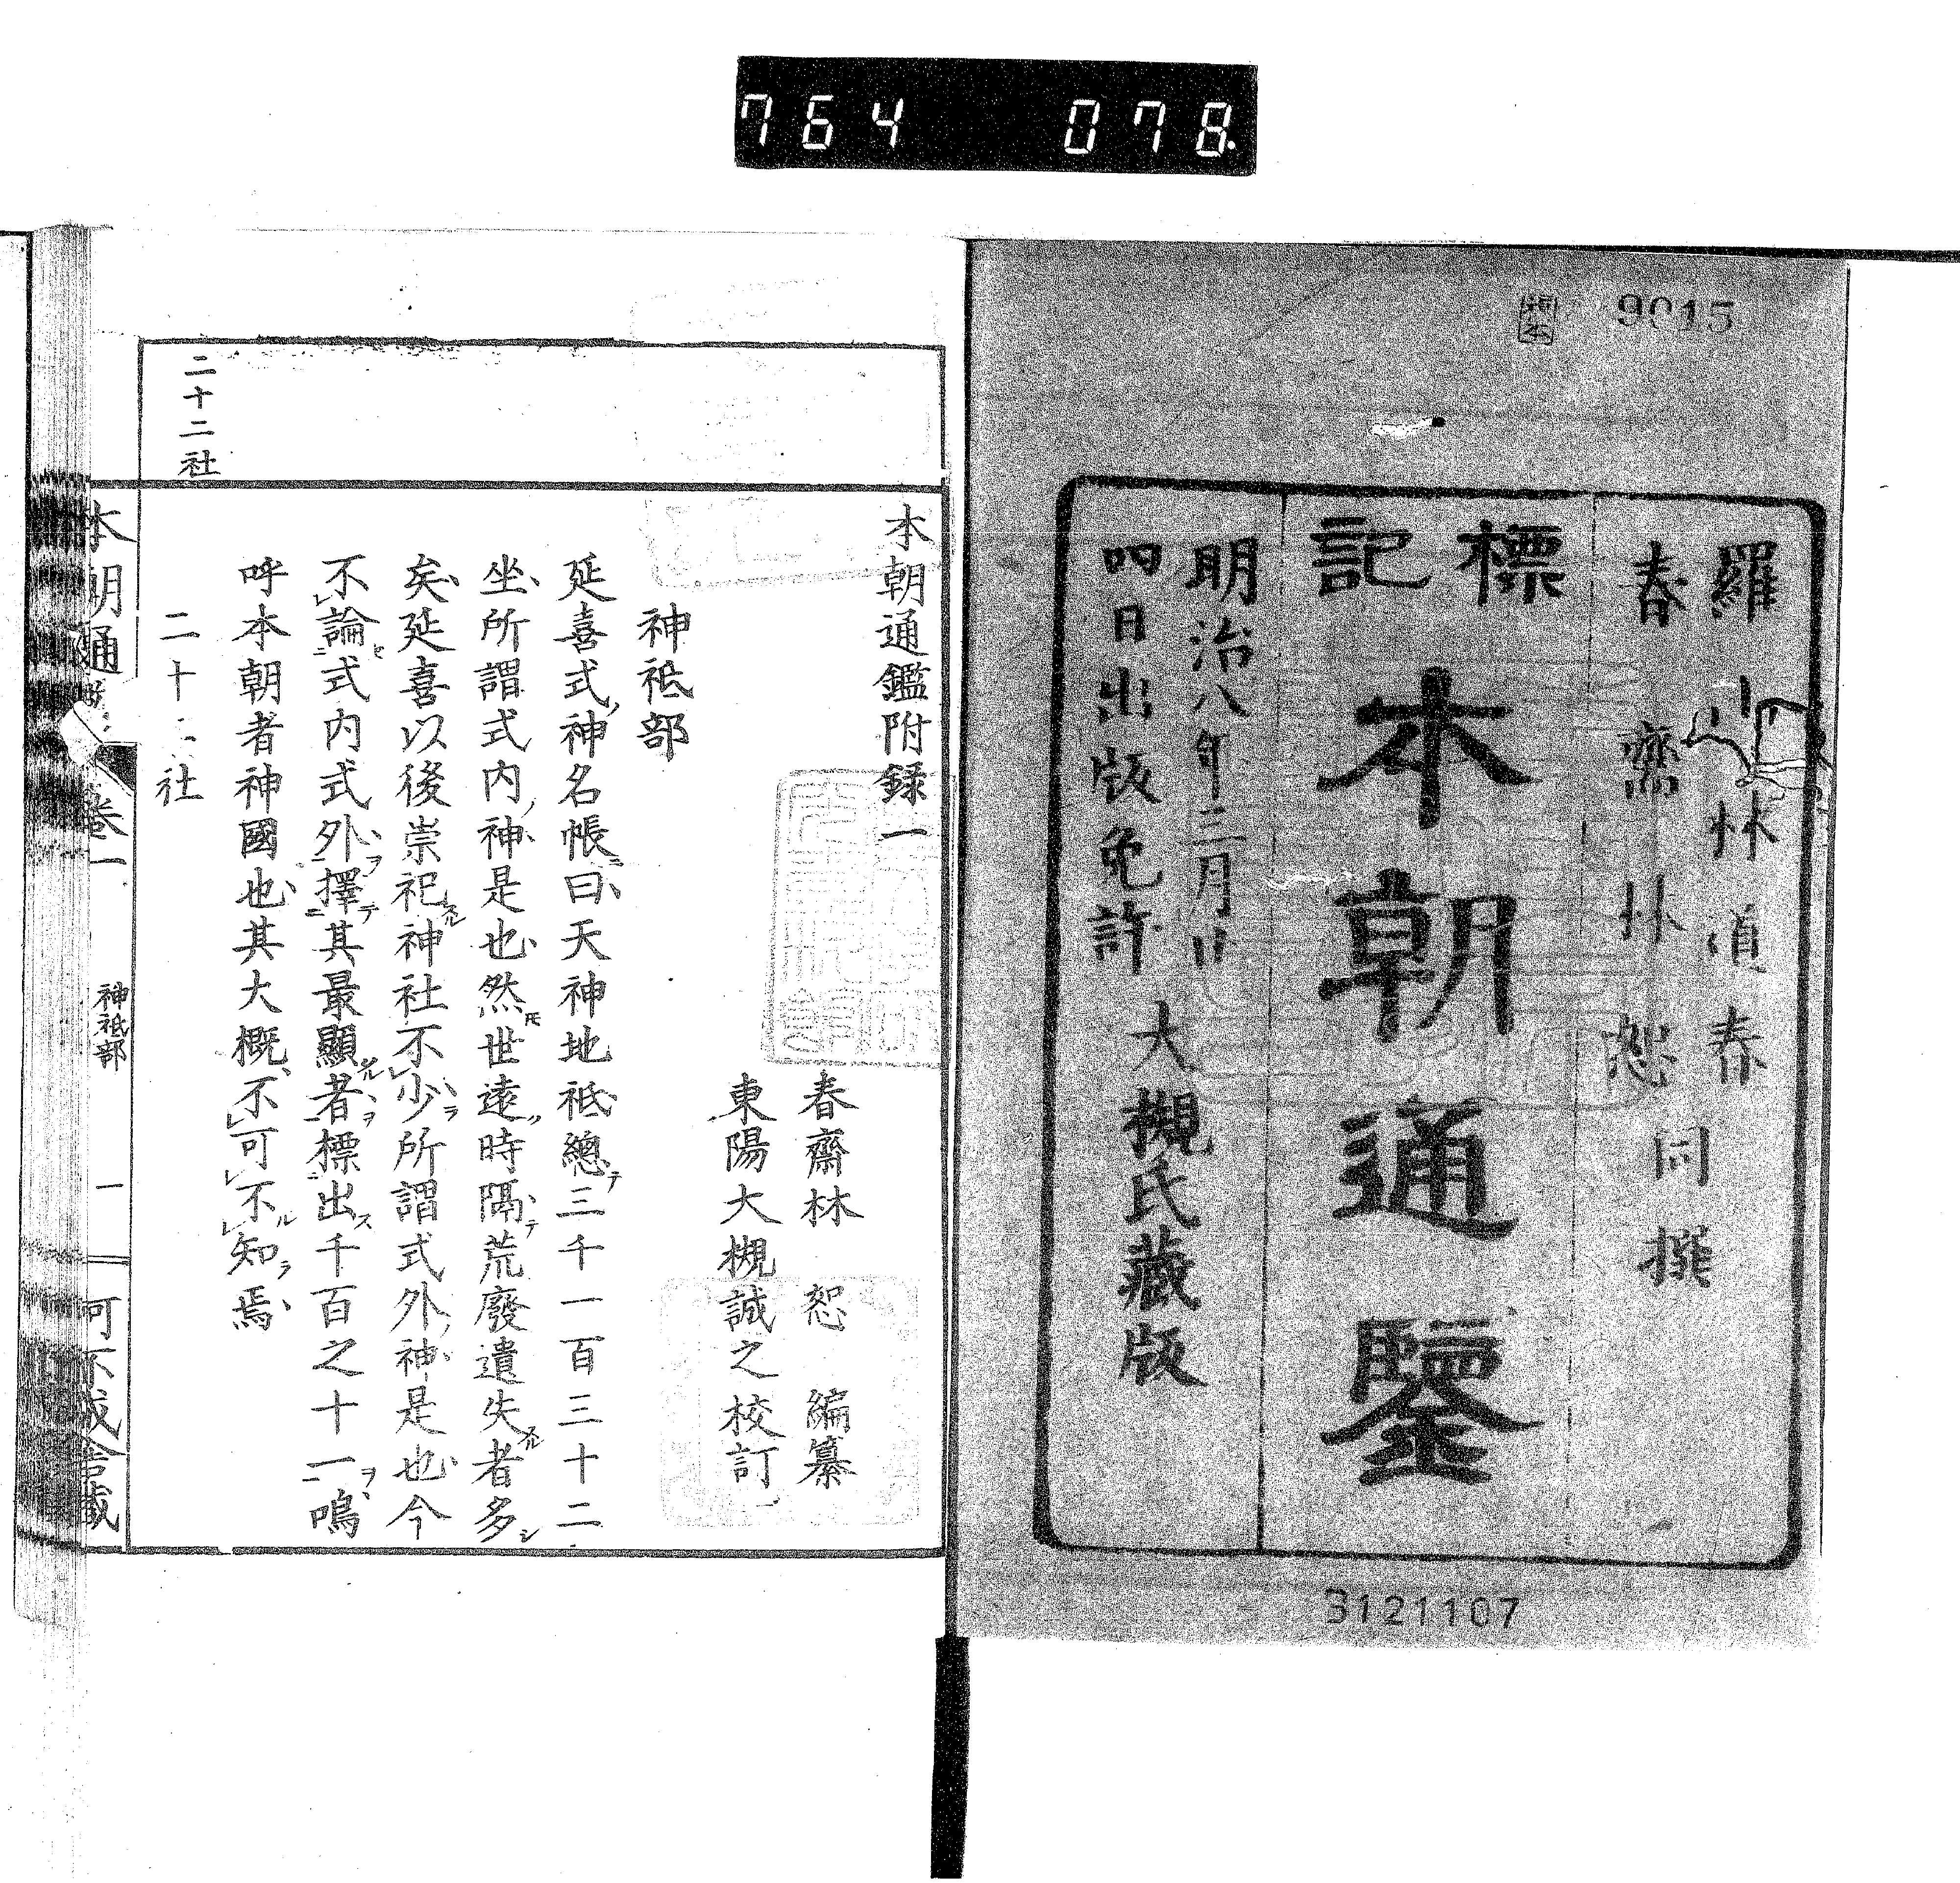 764 078
9015
羅山林道春
春齋林恕同撰
標記
本朝通鑒
明治八年三月廿
四日出版免許
大槻氏藏版
3121107
本朝通鑑附録一
春齋林 恕 編纂
東陽大槻誠之校訂
神祇部
延喜式ノ神名帳ニ曰天神地祇總テ三千一百三十二
坐所謂式内ノ神是也然𪜈世遠ク時隔テ荒廢遺失スル者多シ
矣延喜以後崇祀スル神社不レ少カラ所謂式外ノ神是也今
不レ論セ二式内式外ヲ一擇テ二其最顯ルル者ヲ一標二出ス千百之十一ヲ一嗚
呼本朝者神國也其大概不レ可レ不ルレ知ラ焉
二十二社
二十社
本朝通
卷一
神祇部
一